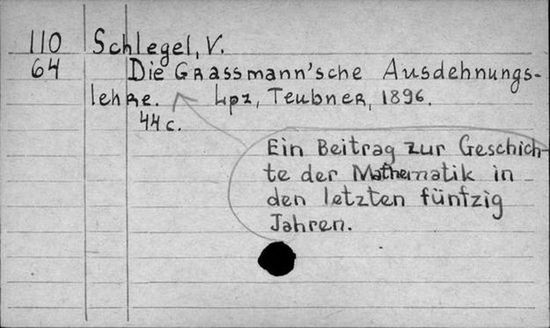 110 Schlegel, V.
64 Die Grassmann'sche Ausdehnungs-
lehre. Lpz, Teubner, 1896.
44 c.
Ein Beitrag zur Geschich-
te der Mathematik in
den letzten fünfzig
Jahren.